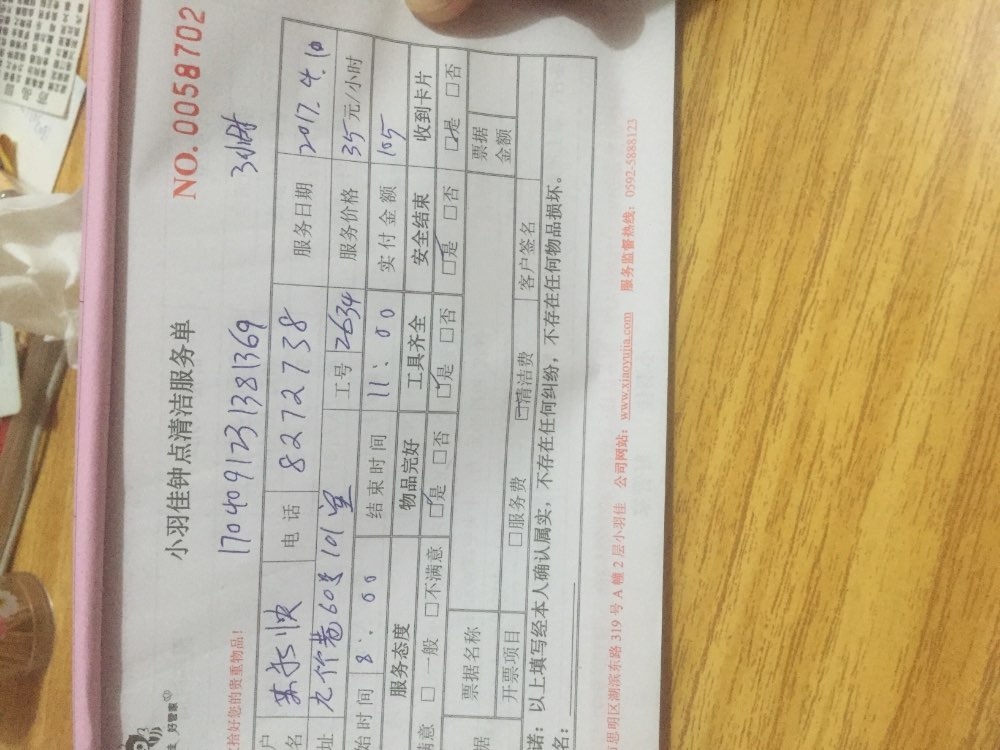 好管家
小羽佳钟点清洁服务单
NO. 0058702
拾好您的贵重物品!
1704091231381369
3小时
户名
电 话 8272738 服务日期 2017.4.10
址 九竹巷60号101室 工号 2634 服务价格 35元/小时
始时间 8:00 结束时间 11:00 实付金额 105
服务态度 物品完好 工具齐全 安全结束 收到卡片
满意 □一般 □不满意 □是 □否 □是 □否 □是 □否 □是 □否
据 票据名称 票据金额
开票项目 □服务费 □清洁费 客户签名
诺:以上填写经本人确认属实,不存在任何纠纷,不存在任何物品损坏。
名:
思明区湖滨东路 319 号 A 幢 2 层小羽佳 公司网站:www.xiaoyujia.com 服务监督热线:0592-5888123